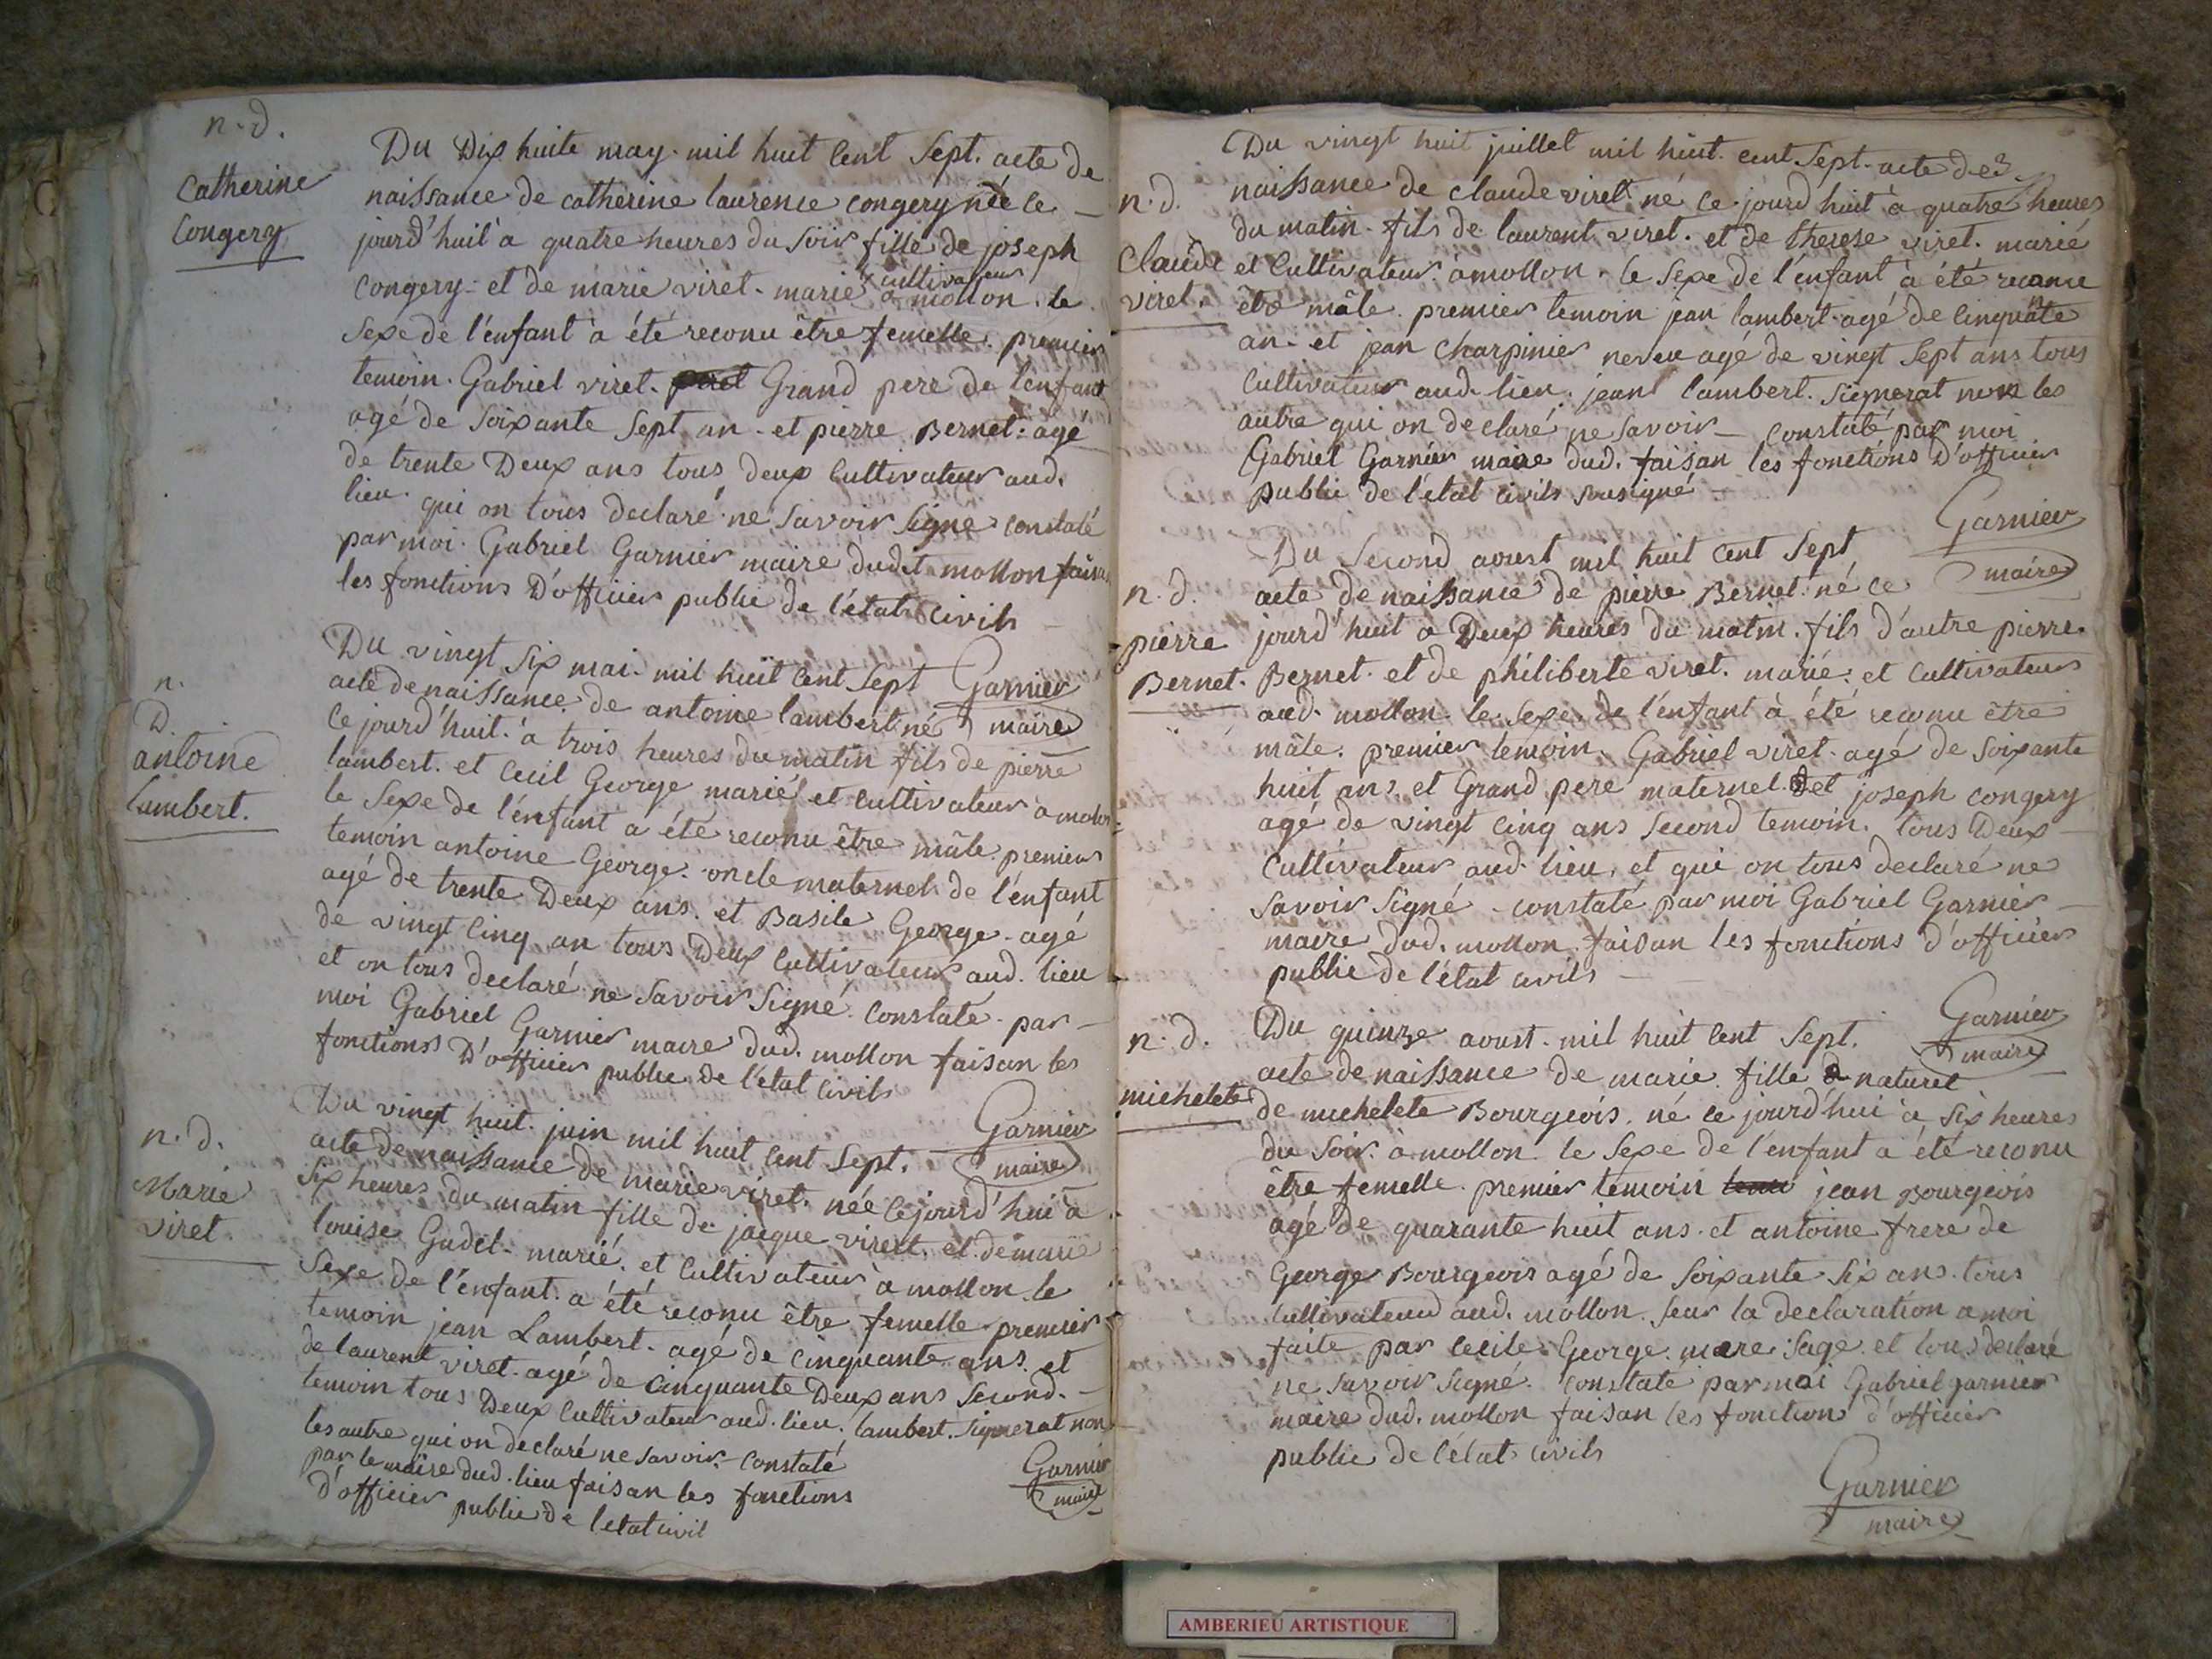 n. d.
Catherine
Congery
Du Dix huite may. mil huit Cent Sept. acte de
naissance de catherine laurence congery née ce
jourd'huit a quatre heures du soir fille de joseph
congery. et de marie viret. marié cultivateur a mollon. le
Sexe de l'enfant a été reconu être femelle. premier
temoin. Gabriel viret. Grand pere de l'enfant
agé de soixante Sept an. et pierre Bernet. agé
de trente Deux ans tous deux Cultivateur aud.
lieu. qui on tous declaré ne savoir signé constaté
par moi. Gabriel Garnier maire dudit mollon faisan
les fonctions D'officier public de l'état civils
Garnier
maire
n.
D.
antoine
lambert.
Du vingt Six mai. mil huit Cent Sept
acte de naissance de antoine lambert né
Ce jourd'huit. à trois heures du matin fils de pierre
lambert. et Cecil George marié et Cultivateur a mollon
le Sexe de l'enfant a été reconu être mâle. premier
temoin antoine George. oncle maternel de l'enfant
agé de trente Deux ans. et Basile George. agé
de vingt Cinq an tous Deux Cultivateur aud. lieu
et on tous declaré ne savoir signé. Constaté. par
moi Gabriel Garnier maire dud. mollon faisan les
fonctions D'officier public de l'état Civils
Garnier
maire
n. d.
Marie
viret.
Du vingt huit. juin mil huit Cent Sept.
acte de naissance de marie viret. née Cejourd'hui a
Six heures du matin fille de jacque virert. et de marie
louise Gudet. marié. et Cultivateur a mollon. le
Sexe de l'enfant. a été reconu être femelle. premier
temoin jean Lambert. agé de cinquante ans. et
de laurent viret. agé de cinquante Deux ans Second.
temoin tous Deux Cultivateur aud. lieu. lambert. Signerat non
les autre qui on declaré ne savoir. Constaté
par le maire dud. lieu faisan les fonctions
D'officier public de l'etat civil
Garnier
maire
n. d.
Claude
viret.
Du vingt huit juillet mil huit. cent Sept. acte de
naissance de claude viret. né ce jourd'huit à quatre heures
du matin. fils de laurent viret. et de therese viret. marié
et Cultivateur à mollon. le Sexe de l'enfant à été reconu
être mâle. premier temoin jean lambert. agé de Cinquante
an. et jean Charpinier neveu agé de vingt Sept ans tous
Cultivateur aud. lieu. jean lambert. signerat non les
autre qui on declaré ne savoir. constaté par moi
Gabriel Garnier maire dud. faisan les fonctions D'officier
public de l'état civils sousigné
Garnier
maire
n. d.
pierre
Bernet.
Du Second aoust mil huit Cent Sept
acte de naissance de pierre Bernet. né ce
jourd'huit a Deux heures du matin. fils d'autre pierre
Bernet. et de philiberte viret. marié. et Cultivateur
aud. mollon. le Sexe de l'enfant à été reconu être
mâle. premier temoin. Gabriel viret. agé de Soixante
huit ans et Grand pere maternel et joseph congery
agé de vingt Cinq ans Second temoin. tous Deux
Cultivateur aud. lieu, et qui on tous declaré ne
savoir signé. constaté par moi Gabriel Garnier
maire dud. mollon. faisan les fonctions d'officier
public de l'état civils
Garnier
maire
n. d.
michelete
Du quinze aoust. mil huit Cent Sept.
acte de naissance de marie. fille naturel
de michelete Bourgeois. né ce jourd'hui a Six heures
du Soir. a mollon. le Sexe de l'enfant a été reconu
être femelle. premier temoin jean Bourgeois
agé de quarante huit ans. et antoine frere de
George Bourgeois agé de Soixante Six ans. tous
Cultivateur aud. mollon. Sur la declaration a moi
faite par Cecile George. mere Sage. et tous declaré
ne savoir signé. Constaté par moi Gabriel garnier
maire dud. mollon faisan les fonction d'officier
public de l'état civils
Garnier
maire
AMBERIEU ARTISTIQUE